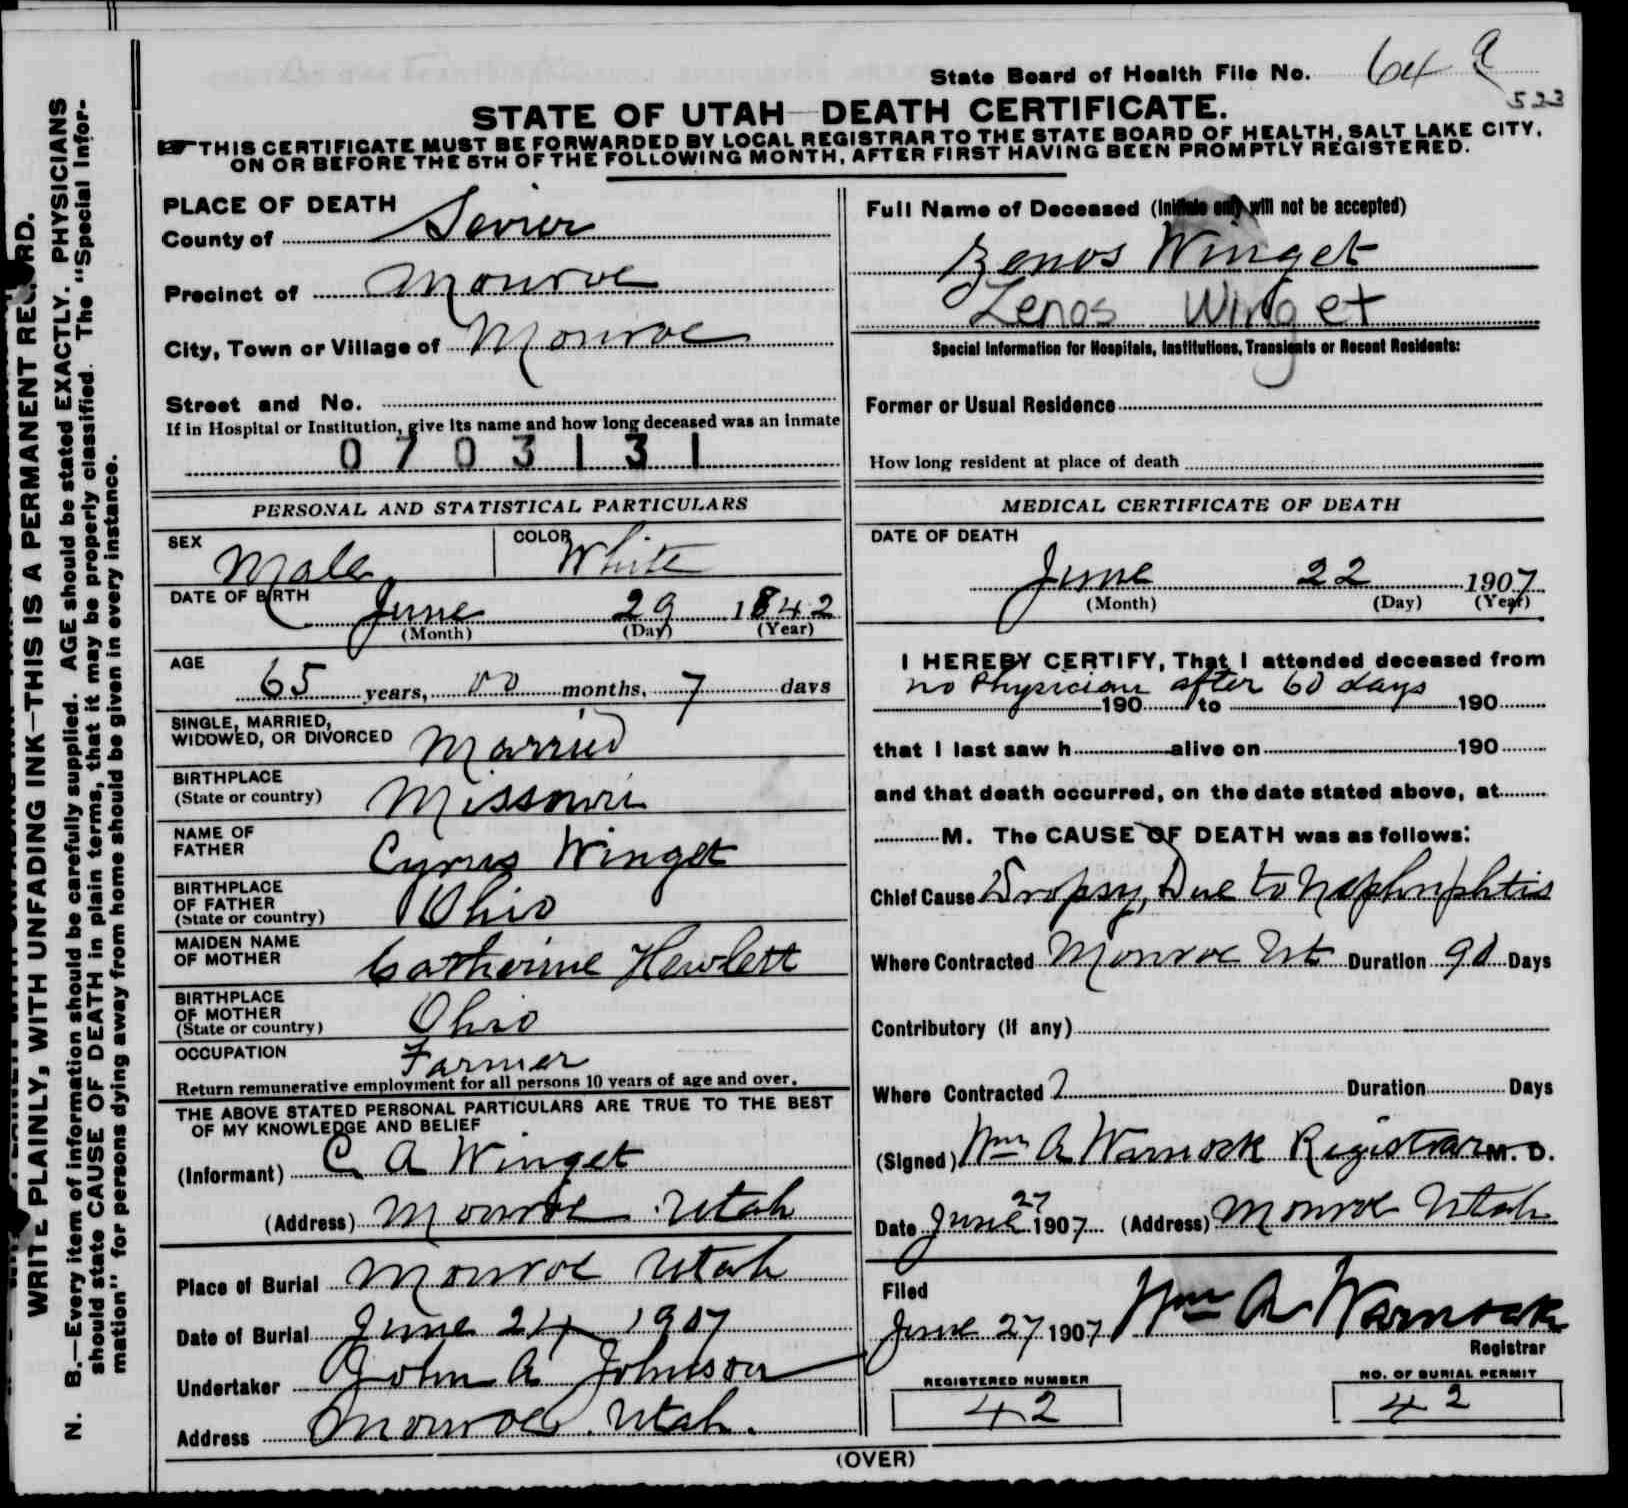 State Board of Health File No. 64 a
523
STATE OF UTAH—DEATH CERTIFICATE.
☞ THIS CERTIFICATE MUST BE FORWARDED BY LOCAL REGISTRAR TO THE STATE BOARD OF HEALTH, SALT LAKE CITY,
ON OR BEFORE THE 5TH OF THE FOLLOWING MONTH, AFTER FIRST HAVING BEEN PROMPTLY REGISTERED.
WRITE PLAINLY, WITH UNFADING INK—THIS IS A PERMANENT RECORD.
N. B.—Every item of information should be carefully supplied. AGE should be stated EXACTLY. PHYSICIANS
should state CAUSE OF DEATH in plain terms, that it may be properly classified. The "Special Infor-
mation" for persons dying away from home should be given in every instance.
PLACE OF DEATH
County of Sevier
Precinct of Monroe
City, Town or Village of Monroe
Street and No.
If in Hospital or Institution, give its name and how long deceased was an inmate
0703131
PERSONAL AND STATISTICAL PARTICULARS
SEX Male COLOR White
DATE OF BIRTH June 29 1842
(Month) (Day) (Year)
AGE 65 years, 00 months, 7 days
SINGLE, MARRIED,
WIDOWED, OR DIVORCED Married
BIRTHPLACE
(State or country) Missouri
NAME OF
FATHER Cyrus Winget
BIRTHPLACE
OF FATHER
(State or country) Ohio
MAIDEN NAME
OF MOTHER Catherine Hewlett
BIRTHPLACE
OF MOTHER
(State or country) Ohio
OCCUPATION Farmer
Return remunerative employment for all persons 10 years of age and over.
THE ABOVE STATED PERSONAL PARTICULARS ARE TRUE TO THE BEST
OF MY KNOWLEDGE AND BELIEF
(Informant) C A Winget
(Address) Monroe Utah
Place of Burial Monroe Utah
Date of Burial June 24 1907
Undertaker John A Johnson
Address Monroe Utah.
Full Name of Deceased (Initials only will not be accepted)
Zenos Winget
Zenos Winget
Special Information for Hospitals, Institutions, Transients or Recent Residents:
Former or Usual Residence
How long resident at place of death
MEDICAL CERTIFICATE OF DEATH
DATE OF DEATH
June 22 1907
(Month) (Day) (Year)
I HEREBY CERTIFY, That I attended deceased from
no Physician after 60 days
190 to 190
that I last saw h alive on 190
and that death occurred, on the date stated above, at
M. The CAUSE OF DEATH was as follows:
Chief Cause Dropsy, Due to Nephriphtis
Where Contracted Monroe Ut Duration 90 Days
Contributory (If any)
Where Contracted ? Duration Days
(Signed) Wm A Warnock Registrar M. D.
Date June 27 1907 (Address) Monroe Utah
Filed
June 27 1907 Wm A Warnock
Registrar
REGISTERED NUMBER
42
NO. OF BURIAL PERMIT
42
(OVER)